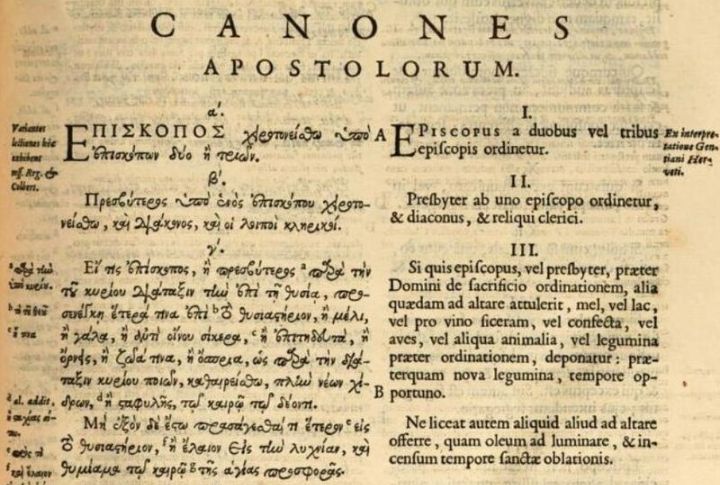 CANONES
APOSTOLORUM.
Variantes
lectiones hic
exhibent
mss. Reg. &
Colbert.
α΄.
ΕΠΙΣΚΟΠΟΣ χειροτονείσθω ὑπὸ
ἐπισκόπων δύο ἢ τριῶν.
β΄.
Πρεσβύτερος ὑπὸ ἑνὸς ἐπισκόπου χειροτο-
νείσθω, καὶ διάκονος, καὶ οἱ λοιποὶ κληρικοί.
γ΄.
Εἴ τις ἐπίσκοπος, ἢ πρεσβύτερος a παρὰ τὴν
τοῦ κυρίου διάταξιν τὴν ἐπὶ τῇ θυσίᾳ, προσ-
ενέγκῃ ἕτερά τινα ἐπὶ b τὸ θυσιαστήριον, ἢ μέλι,
ἢ γάλα, ἢ ἀντὶ οἴνου σίκερα, c ἢ ἐπιτηδευτὰ, ἢ
ὄρνεις, ἢ ζῶά τινα, ἢ ὄσπρια, ὡς παρὰ τὴν διά-
ταξιν κυρίου ποιῶν, καθαιρείσθω, πλὴν νέων χί-
δρων, d ἢ σταφυλῆς, τῷ καιρῷ τῷ δέοντι.
Μὴ ἐξὸν δὲ ἔστω προσάγεσθαί τι ἕτερον e εἰς
τὸ θυσιαστήριον, f ἢ ἔλαιον εἰς τὴν λυχνίαν, καὶ
θυμίαμα τῷ καιρῷ τῆς ἁγίας προσφορᾶς.
d al. addit.
A
B
I.
EPiscopus a duobus vel tribus
episcopis ordinetur.
II.
Presbyter ab uno episcopo ordinetur,
& diaconus, & reliqui clerici.
III.
Si quis episcopus, vel presbyter, præter
Domini de sacrificio ordinationem, alia
quædam ad altare attulerit, mel, vel lac,
vel pro vino siceram, vel confecta, vel
aves, vel aliqua animalia, vel legumina
præter ordinationem, deponatur: præ-
terquam nova legumina, tempore op-
portuno.
Ne liceat autem aliquid aliud ad altare
offerre, quam oleum ad luminare, & in-
censum tempore sanctæ oblationis.
Ex interpre-
tatione Gen-
tiani Her-
veti.